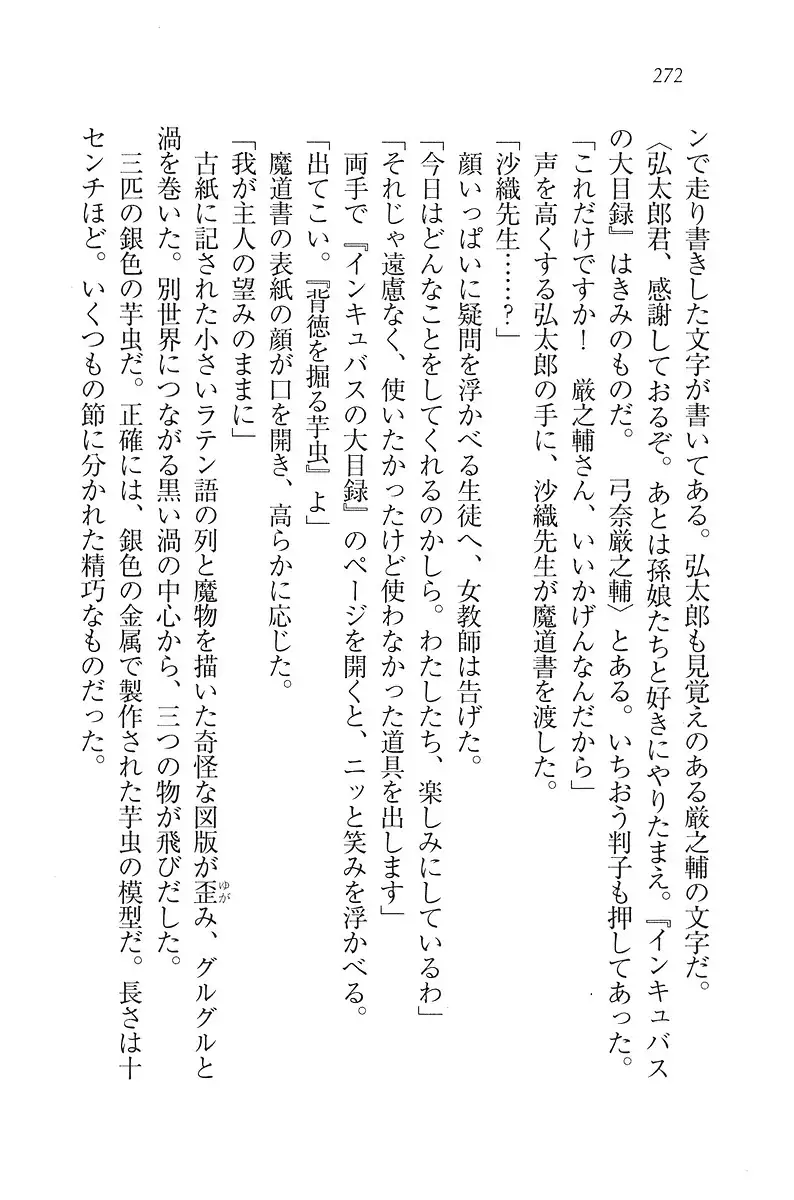 272
ンで走り書きした文字が書いてある。弘太郎も見覚えのある厳之輔の文字だ。
〈弘太郎君、感謝しておるぞ。あとは孫娘たちと好きにやりたまえ。『インキュバス
の大目録』はきみのものだ。　弓奈厳之輔〉とある。いちおう判子も押してあった。
「これだけですか！　厳之輔さん、いいかげんなんだから」
声を高くする弘太郎の手に、沙織先生が魔道書を渡した。
「沙織先生……？」
顔いっぱいに疑問を浮かべる生徒へ、女教師は告げた。
「今日はどんなことをしてくれるのかしら。わたしたち、楽しみにしているわ」
「それじゃ遠慮なく、使いたかったけど使わなかった道具を出します」
両手で『インキュバスの大目録』のページを開くと、ニッと笑みを浮かべる。
「出てこい。『背徳を掘る芋虫』よ」
魔道書の表紙の顔が口を開き、高らかに応じた。
「我が主人の望みのままに」
古紙に記された小さいラテン語の列と魔物を描いた奇怪な図版が歪み、グルグルと
ゆが
渦を巻いた。別世界につながる黒い渦の中心から、三つの物が飛びだした。
三匹の銀色の芋虫だ。正確には、銀色の金属で製作された芋虫の模型だ。長さは十
センチほど。いくつもの節に分かれた精巧なものだった。